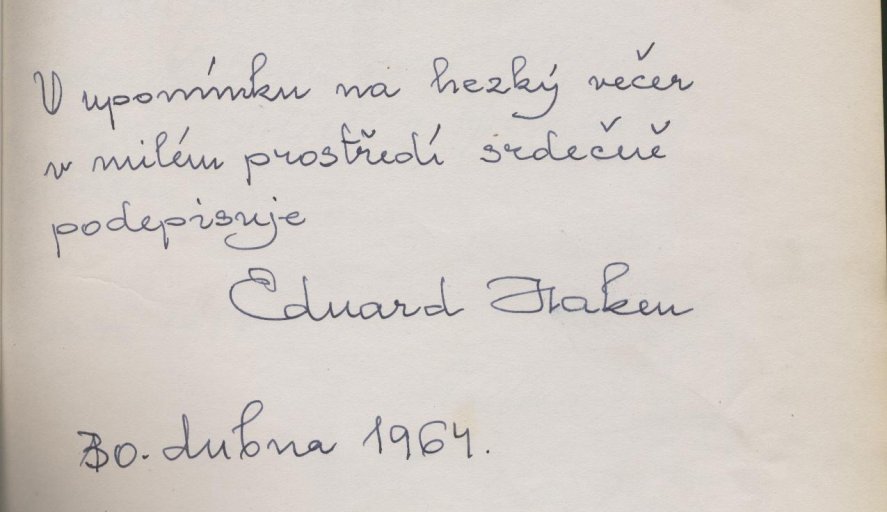 V upomínku na hezký večer
v milém prostředí srdečně
podepisuje
Eduard Haken
30. dubna 1964.